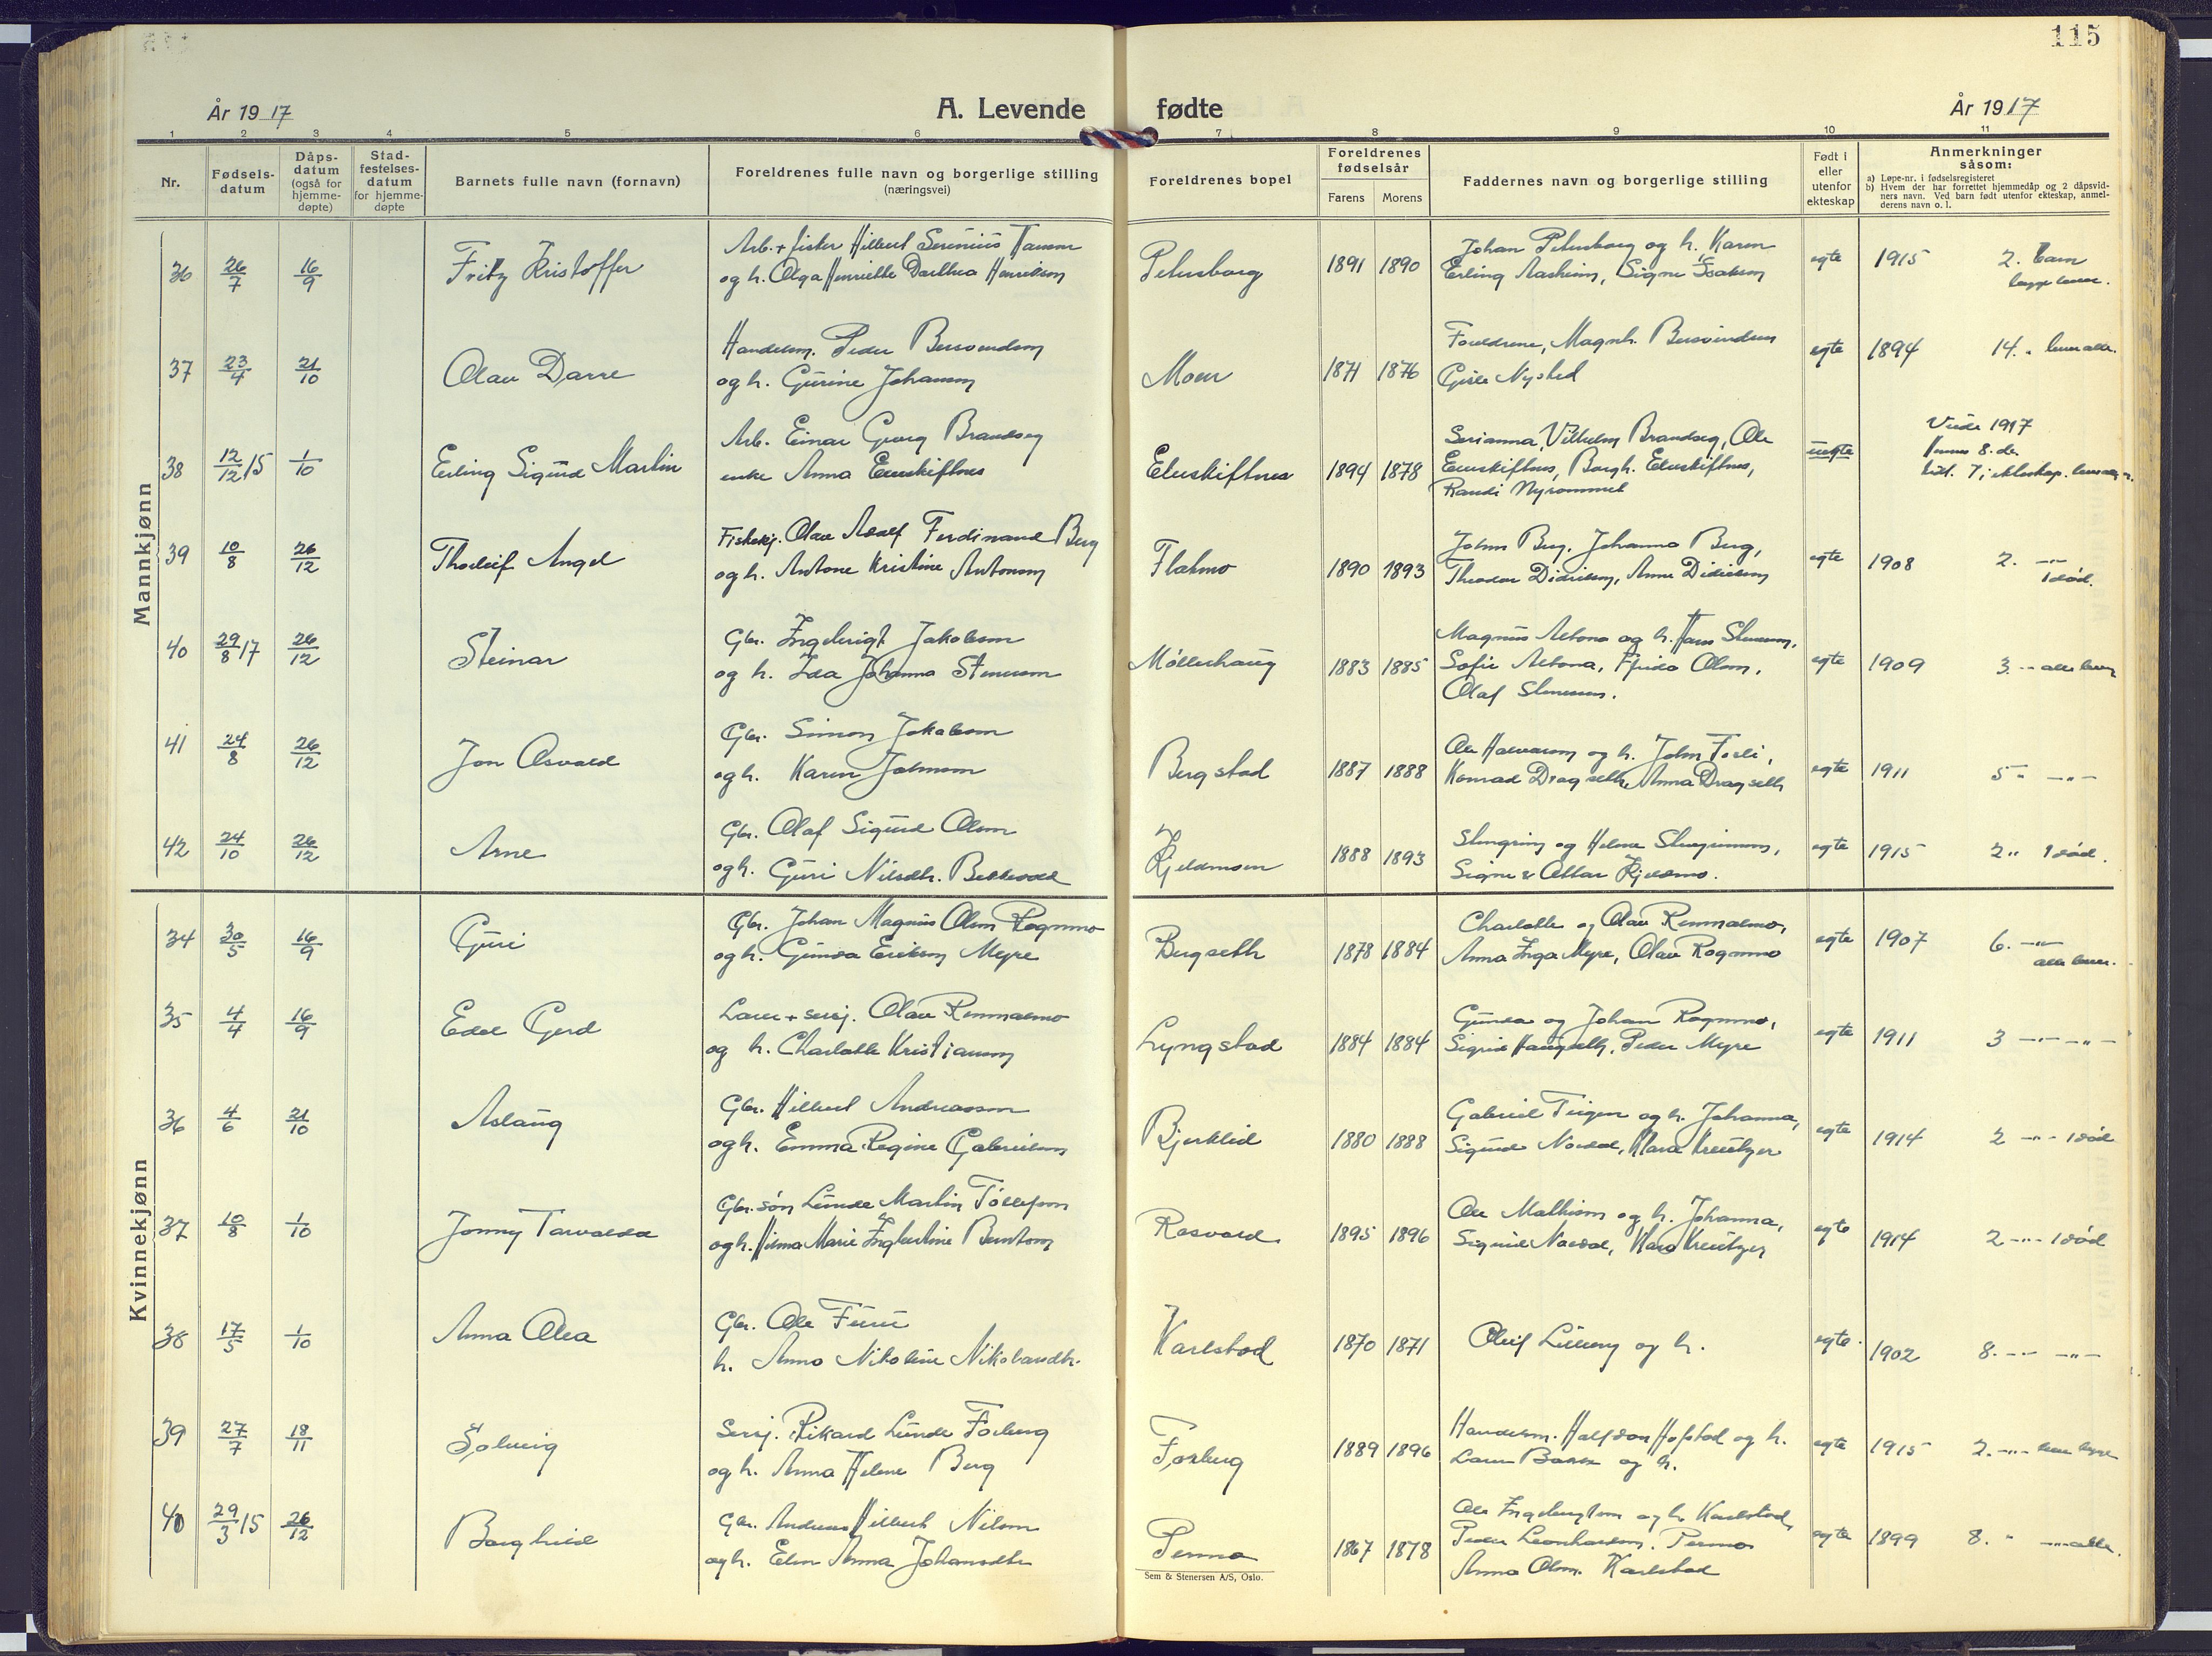 115
År 1917
A. Levende fødte
År 1917
1 2 3 4 5 6 7 8 9 10 11
Nr.
Fødsels-
datum
Dåps-
datum
(også for
hjemme-
døpte)
Stad-
festelses-
datum
for hjemme-
døpte
Barnets fulle navn (fornavn)
Foreldrenes fulle navn og borgerlige stilling
(næringsvei)
Foreldrenes bopel
Foreldrenes
fødselsår
Farens Morens
Faddernes navn og borgerlige stilling
Født i
eller
utenfor
ekteskap
Anmerkninger
såsom:
a) Løpe-nr. i fødselsregisteret
b) Hvem der har forrettet hjemmedåp og 2 dåpsvid-
ners navn. Ved barn født utenfor ekteskap, anmel-
derens navn o. l.
Mannkjønn
36 26/7 16/9 Fritz Kristoffer
Arb. + fisker Hilbert Serenius Hansen
og h. Olga Henriette Dorthea Henriksen
Petersborg 1891 1890
Johan Petersborg og h. Karen
Erling Aasheim, Signe Isaksen
egte 1915 2. barn
begge lever.
37 23/4 21/10 Olav Darre
Handelsm. Peder Bersvendsen
og h. Gurine Johansen
Moen 1871 1876
Foreldrene, Magnh. Bersvendsen
Gisle Nysted
egte 1894 14. " lever alle.
38 12/12 15 1/10 Erling Sigurd Martin
Arb. Einar Georg Brandseg
enke Anna Elveskiftnes
Elveskiftnes 1894 1878
Serianna, Vilhelm Brandseg, Ole
Elveskiftnes, Borgh. Elveskiftnes,
Randi Nyrommet
uegte
Viede 1917
Hennes 8. de
39 10/8 26/12 Thorleif Angel
Fiskekj. Olav Adolf Ferdinand Berg
og h. Antone Kristine Antonsen
Flatmo 1890 1893
Johan Berg, Johanna Berg,
Theodor Didriksen, Anne Didriksen
egte 1908 2. -"-
1 død.
40 29/8 17 26/12 Steinar
Gbr. Ingebrigt Jakobsen
og h. Ida Johanna Stenersen
Møllerhaug 1883 1885
Magnus Aabone og h. Hans Stenersen,
Sofie Aabona, Frida Olsen,
Olaf Stenersen.
egte 1909 3. -- alle lever
41 24/8 26/12 Jon Asvald
Gbr. Simon Jakobsen
og h. Karen Johnsen
Bergstad 1887 1888
Ole Halvorsen og h. John Fosli,
Konrad Dragseth, Anna Dragseth
egte 1911 5 " -"-
42 24/10 26/12 Arne
Gbr. Olaf Sigurd Olsen
og h. Guri Nilsdtr. Bakkevold
Kjeldmoen 1888 1893
Stengrim og Helene Stengrimsen,
Signe & Ottar Kjeldmo.
egte 1915 2 " 1 død.
Kvinnekjønn
34 30/5 16/9 Guri
Gbr. Johan Magnus Olsen Rognmo
og h. Gunda Eriksen Myre
Bergseth 1878 1884
Charlotte og Olav Renmælmo,
Anna Inga Myre, Olav Rognmo
egte 1907 6. -"-
alle lever.
35 4/4 16/9 Edel Gerd
Lærer + sersj. Olav Renmælmo
og h. Charlotte Kristiansen
Lyngstad 1884 1884
Gunda og Johan Rognmo,
Sigrid Haugseth, Peder Myre
egte 1911 3 -"- -"-
36 4/6 21/10 Aslaug
Gbr. Hilbert Andreassen
og h. Emma Regine Gabrielsen
Bjerklid 1880 1888
Gabriel Teigen og h. Johanna,
Sigurd Nordal, Klara Kreutzer
egte 1914 2 -"- 1 død
37 10/8 1/10 Jonny Tarvalda
Gbr. søn Lunde Martin Tollefsen
og h. Hilma Marie Ingbertine Berntsen
Rosvold 1895 1896
Ole Mathisen og h. Johanna,
Sigurd Nordal, Klara Kreutzer
egte 1914 2 -"- 1 død
38 17/5 1/10 Anna Olea
Gbr. Ole Furu
h. Anna Nikoline Nikolaisdtr.
Karlstad 1870 1871
Oluf Lilleeng og h.
egte. 1902 8. -- -"-
39 27/7 18/11 Solveig
Sersj. Rikard Lunde Fosberg
og h. Anna Helene Berg
Fosberg 1889 1896
Handelsm. Halfdan Hofstad og h.
Lars Bakk og h.
egte 1915 2. -"- lever begge
40 29/3 15 26/12 Borghild
Gbr. Andreas Hilbert Nilsen
og h. Elen Anna Johansdtr
Permo 1867 1878
Ole Ingebrigtsen og h. Karlstad,
Peder Leonhardsen, Permo
Anna Olsen. Karlstad
egte 1899 8. " -"- alle.
Sem & Stenersen A/S, Oslo.